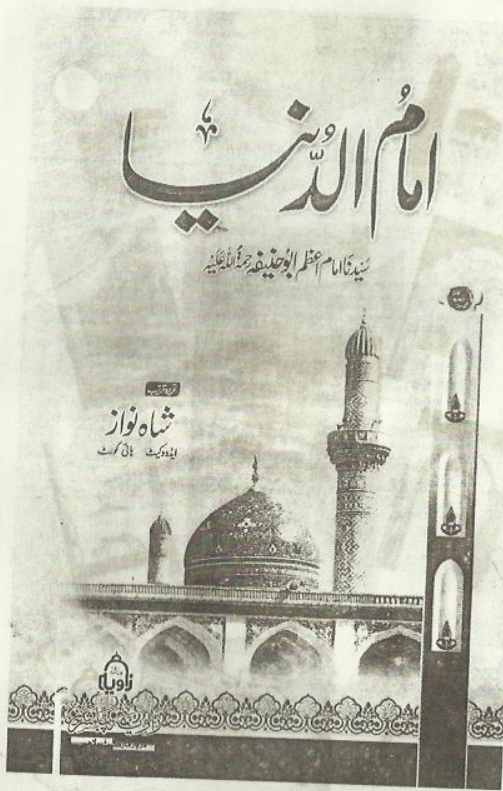 امامُ الدُّنیا
سَیِّدُنَا امام اعظم ابُوحنیفہ رحمۃُ اللہ عَلَیْہ
شاہ نواز
ایڈووکیٹ ہائی کورٹ
زاویہ